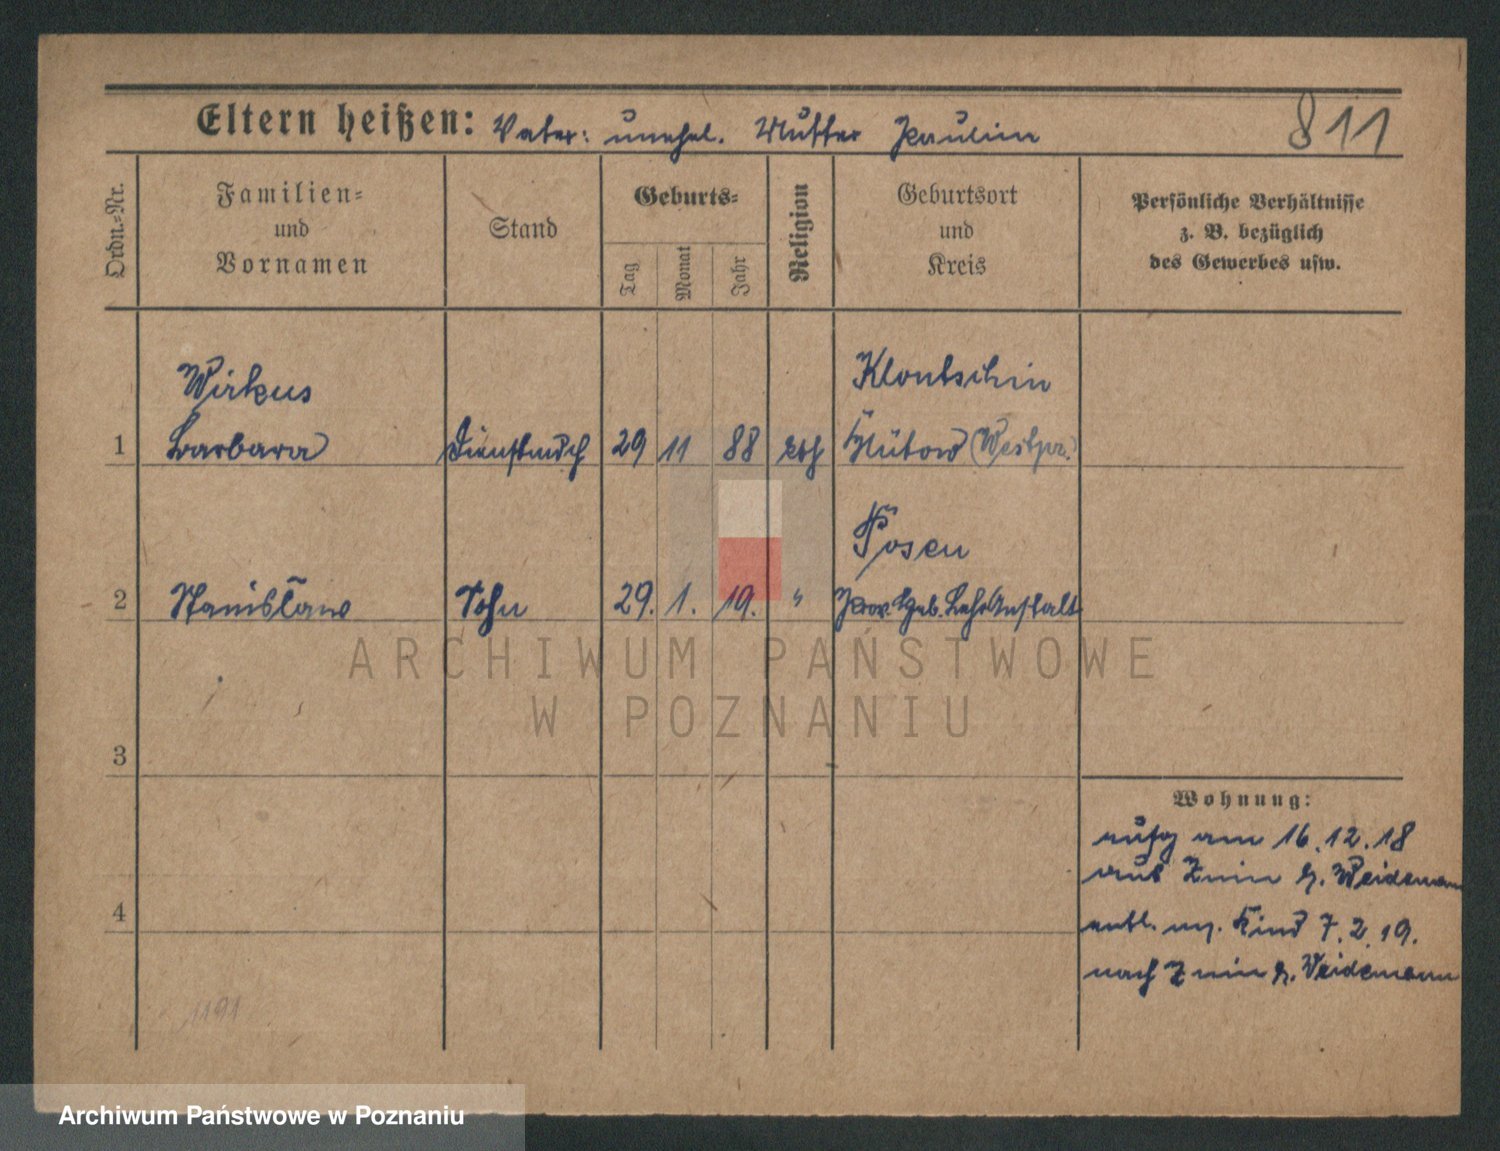 Eltern heißen: Vater: unehel. Mutter Paulin
811
Ordn.-Nr.
Familien- und Vornamen
Stand
Geburts-
Tag
Monat
Jahr
Religion
Geburtsort und Kreis
Persönliche Verhältnisse z. B. bezüglich des Gewerbes usw.
Wirkus
Klontschin
1 Barbara Dienstmdch 29 11 88 kth Bütow (Westpr.)
Posen
2 Stanisław Sohn 29. 1. 19. " Prov. Heb. Lehr Anstalt
ARCHIWUM PAŃSTWOWE
W POZNANIU
3
Wohnung:
am 16.12.18
aus Znin b. Weidemann
4
entl. m. Kind 7.2.19.
nach Znin b. Weidemann
1191
Archiwum Państwowe w Poznaniu